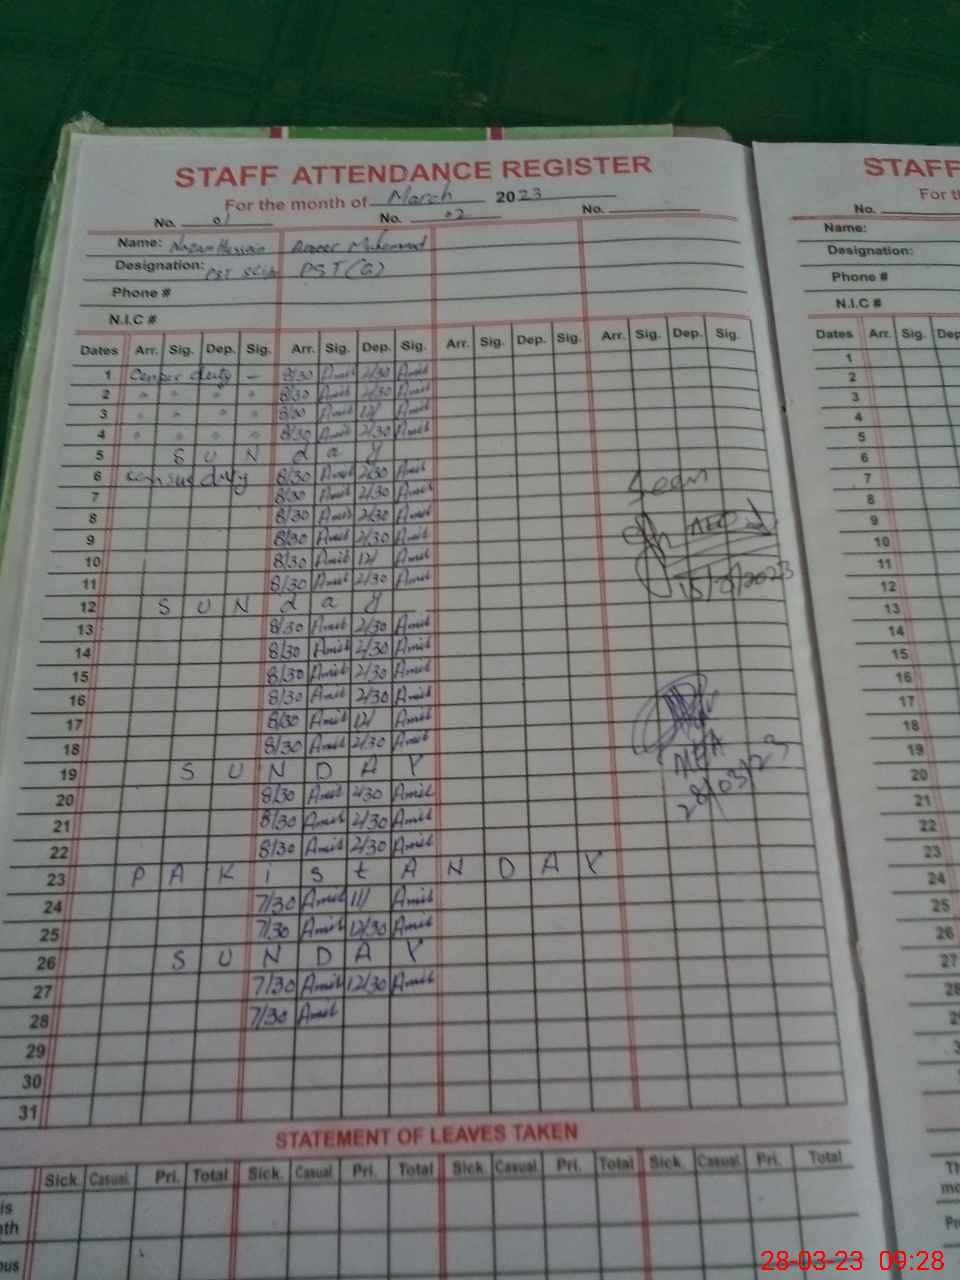 STAFF ATTENDANCE REGISTER
For the month of March 2023
No. 01 No. 02 No.
Name: Nazam Hussain Ameer Muhammad
Designation: PST PST (G)
Phone #
N.I.C #
Dates Arr. Sig. Dep. Sig. Arr. Sig. Dep. Sig. Arr. Sig. Dep. Sig. Arr. Sig. Dep. Sig.
1 duty - 8/30 Amit 2/30 Amit
2 " " " " 8/30 Amit 2/30 Amit
3 " " " " 8/30 Amit 12/ Amit
4 " " " " 8/30 Amit 2/30 Amit
5 S U N d a y
6 census duty 8/30 Amit 2/30 Amit
7 8/30 Amit 2/30 Amit
8 8/30 Amit 2/30 Amit
9 8/30 Amit 2/30 Amit
10 8/30 Amit 12/ Amit
11 8/30 Amit 2/30 Amit
12 S U N d a y
13 8/30 Amit 2/30 Amit
14 8/30 Amit 2/30 Amit
15 8/30 Amit 2/30 Amit
16 8/30 Amit 2/30 Amit
17 8/30 Amit 12/ Amit
18 8/30 Amit 2/30 Amit
19 S U N D A Y
20 8/30 Amit 2/30 Amit
21 8/30 Amit 2/30 Amit
22 8/30 Amit 2/30 Amit
23 P A K i s t A N D A Y
24 7/30 Amit 11/ Amit
25 7/30 Amit 12/30 Amit
26 S U N D A Y
27 7/30 Amit 12/30 Amit
28 7/30 Amit
29
30
31
Seen
MEA
28/03/23
STATEMENT OF LEAVES TAKEN
Sick. Casual. Pri. Total Sick. Casual. Pri. Total Sick. Casual. Pri. Total Sick. Casual. Pri. Total
STAFF
No.
Name:
Designation:
Phone #
N.I.C #
Dates Arr. Sig.
1
2
3
4
5
6
7
8
9
10
11
12
13
14
15
16
17
18
19
20
21
22
23
24
25
26
27
28-03-23 09:28